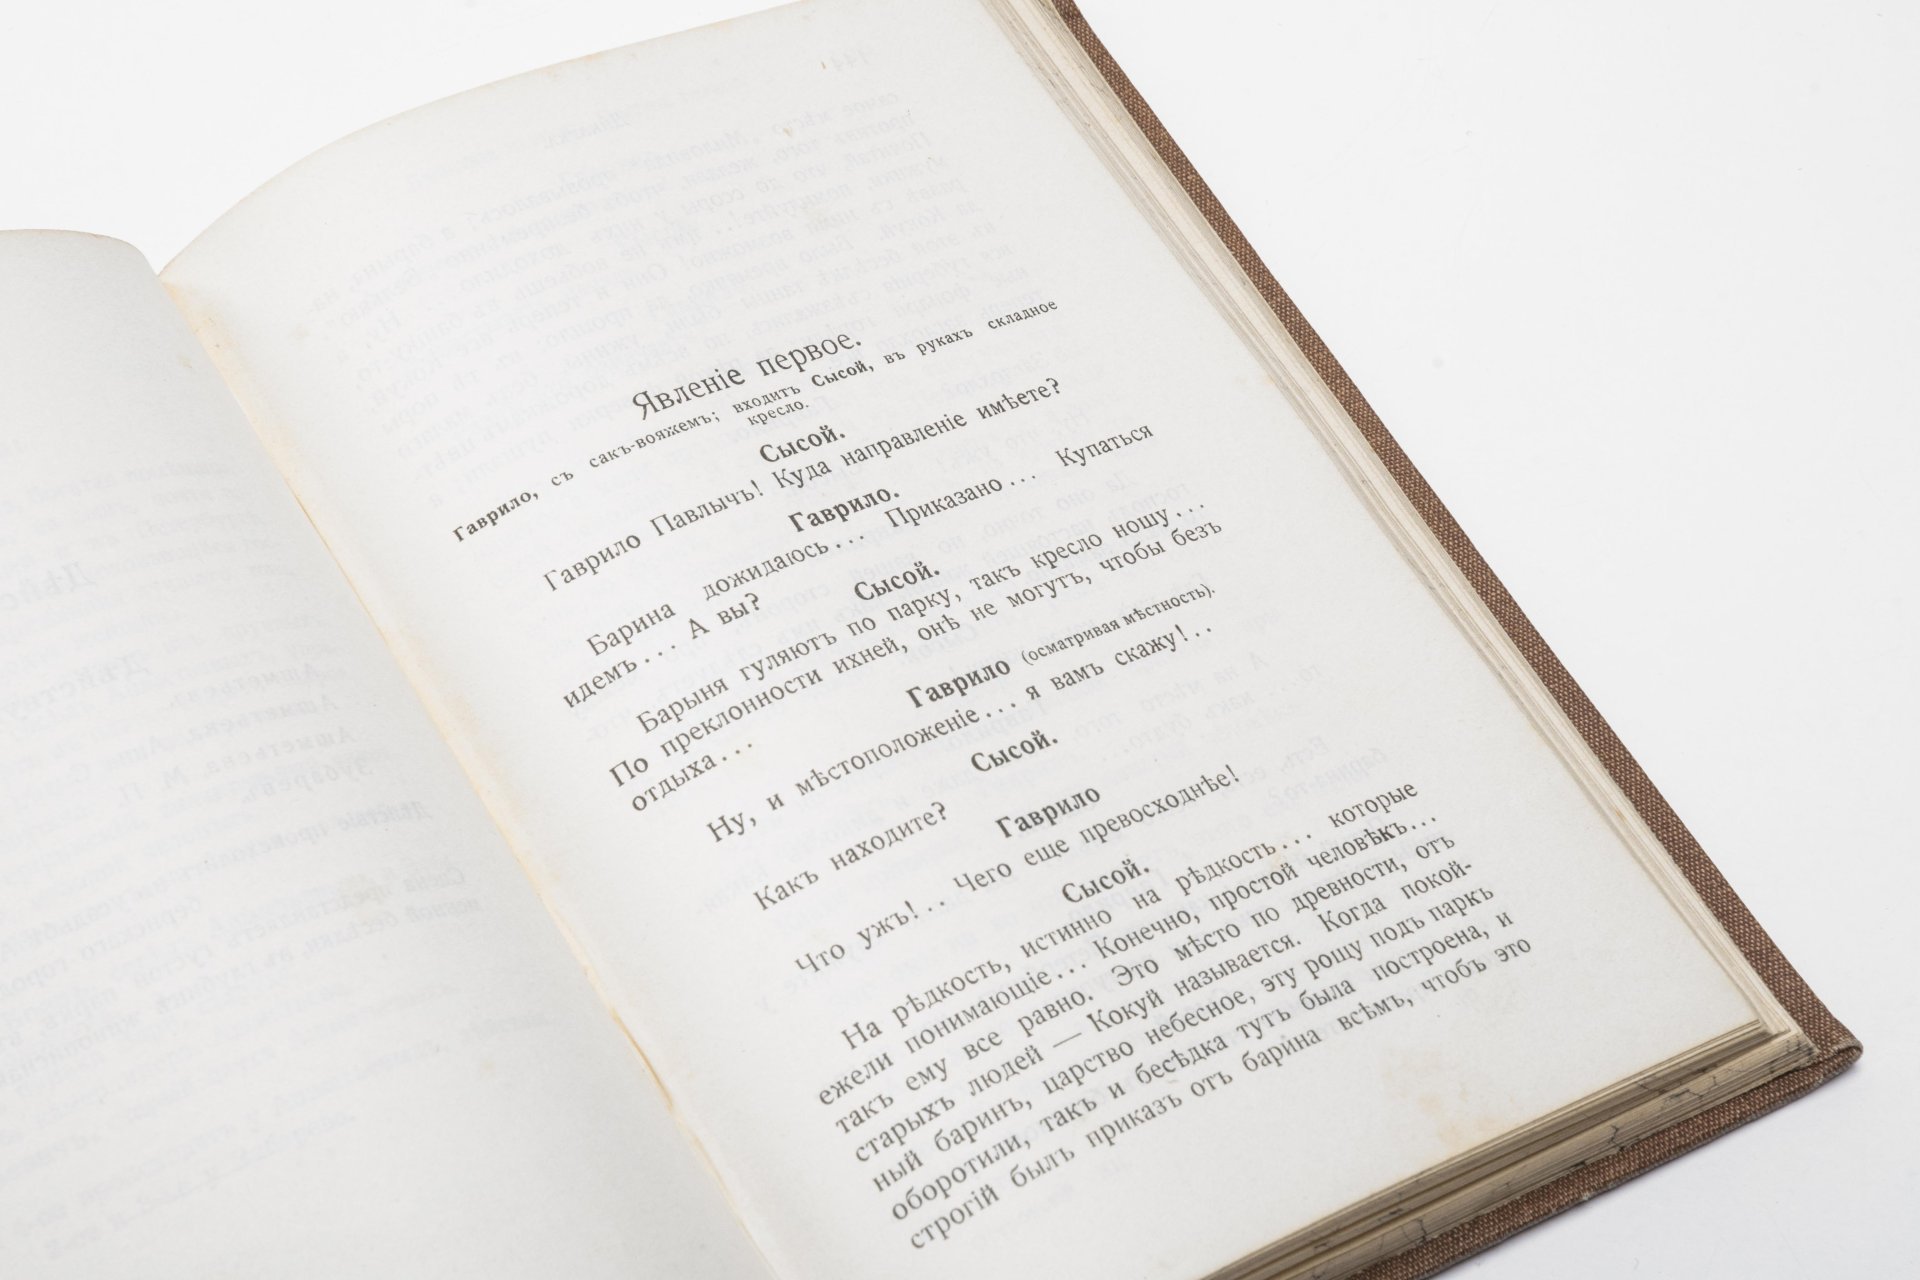 Явленіе первое.
Гаврило, съ сакъ-вояжемъ; входитъ Сысой, въ рукахъ складное
кресло.
Сысой.
Гаврило Павлычъ! Куда направленіе имѣете?
Гаврило.
Барина дожидаюсь... Приказано... Купаться
идемъ... А вы?
Сысой.
Барыня гуляютъ по парку, такъ кресло ношу...
По преклонности ихней, онѣ не могутъ, чтобы безъ
отдыха...
Гаврило (осматривая мѣстность).
Ну, и мѣстоположеніе... я вамъ скажу!..
Сысой.
Какъ находите?
Гаврило
Что ужъ!.. Чего еще превосходнѣе!
Сысой.
На рѣдкость, истинно на рѣдкость... которые
ежели понимающіе... Конечно, простой человѣкъ...
такъ ему все равно. Это мѣсто по древности, отъ
старыхъ людей — Кокуй называется. Когда покой-
ный баринъ, царство небесное, эту рощу подъ паркъ
оборотили, такъ и бесѣдка тутъ была построена, и
строгій былъ приказъ отъ барина всѣмъ, чтобъ это